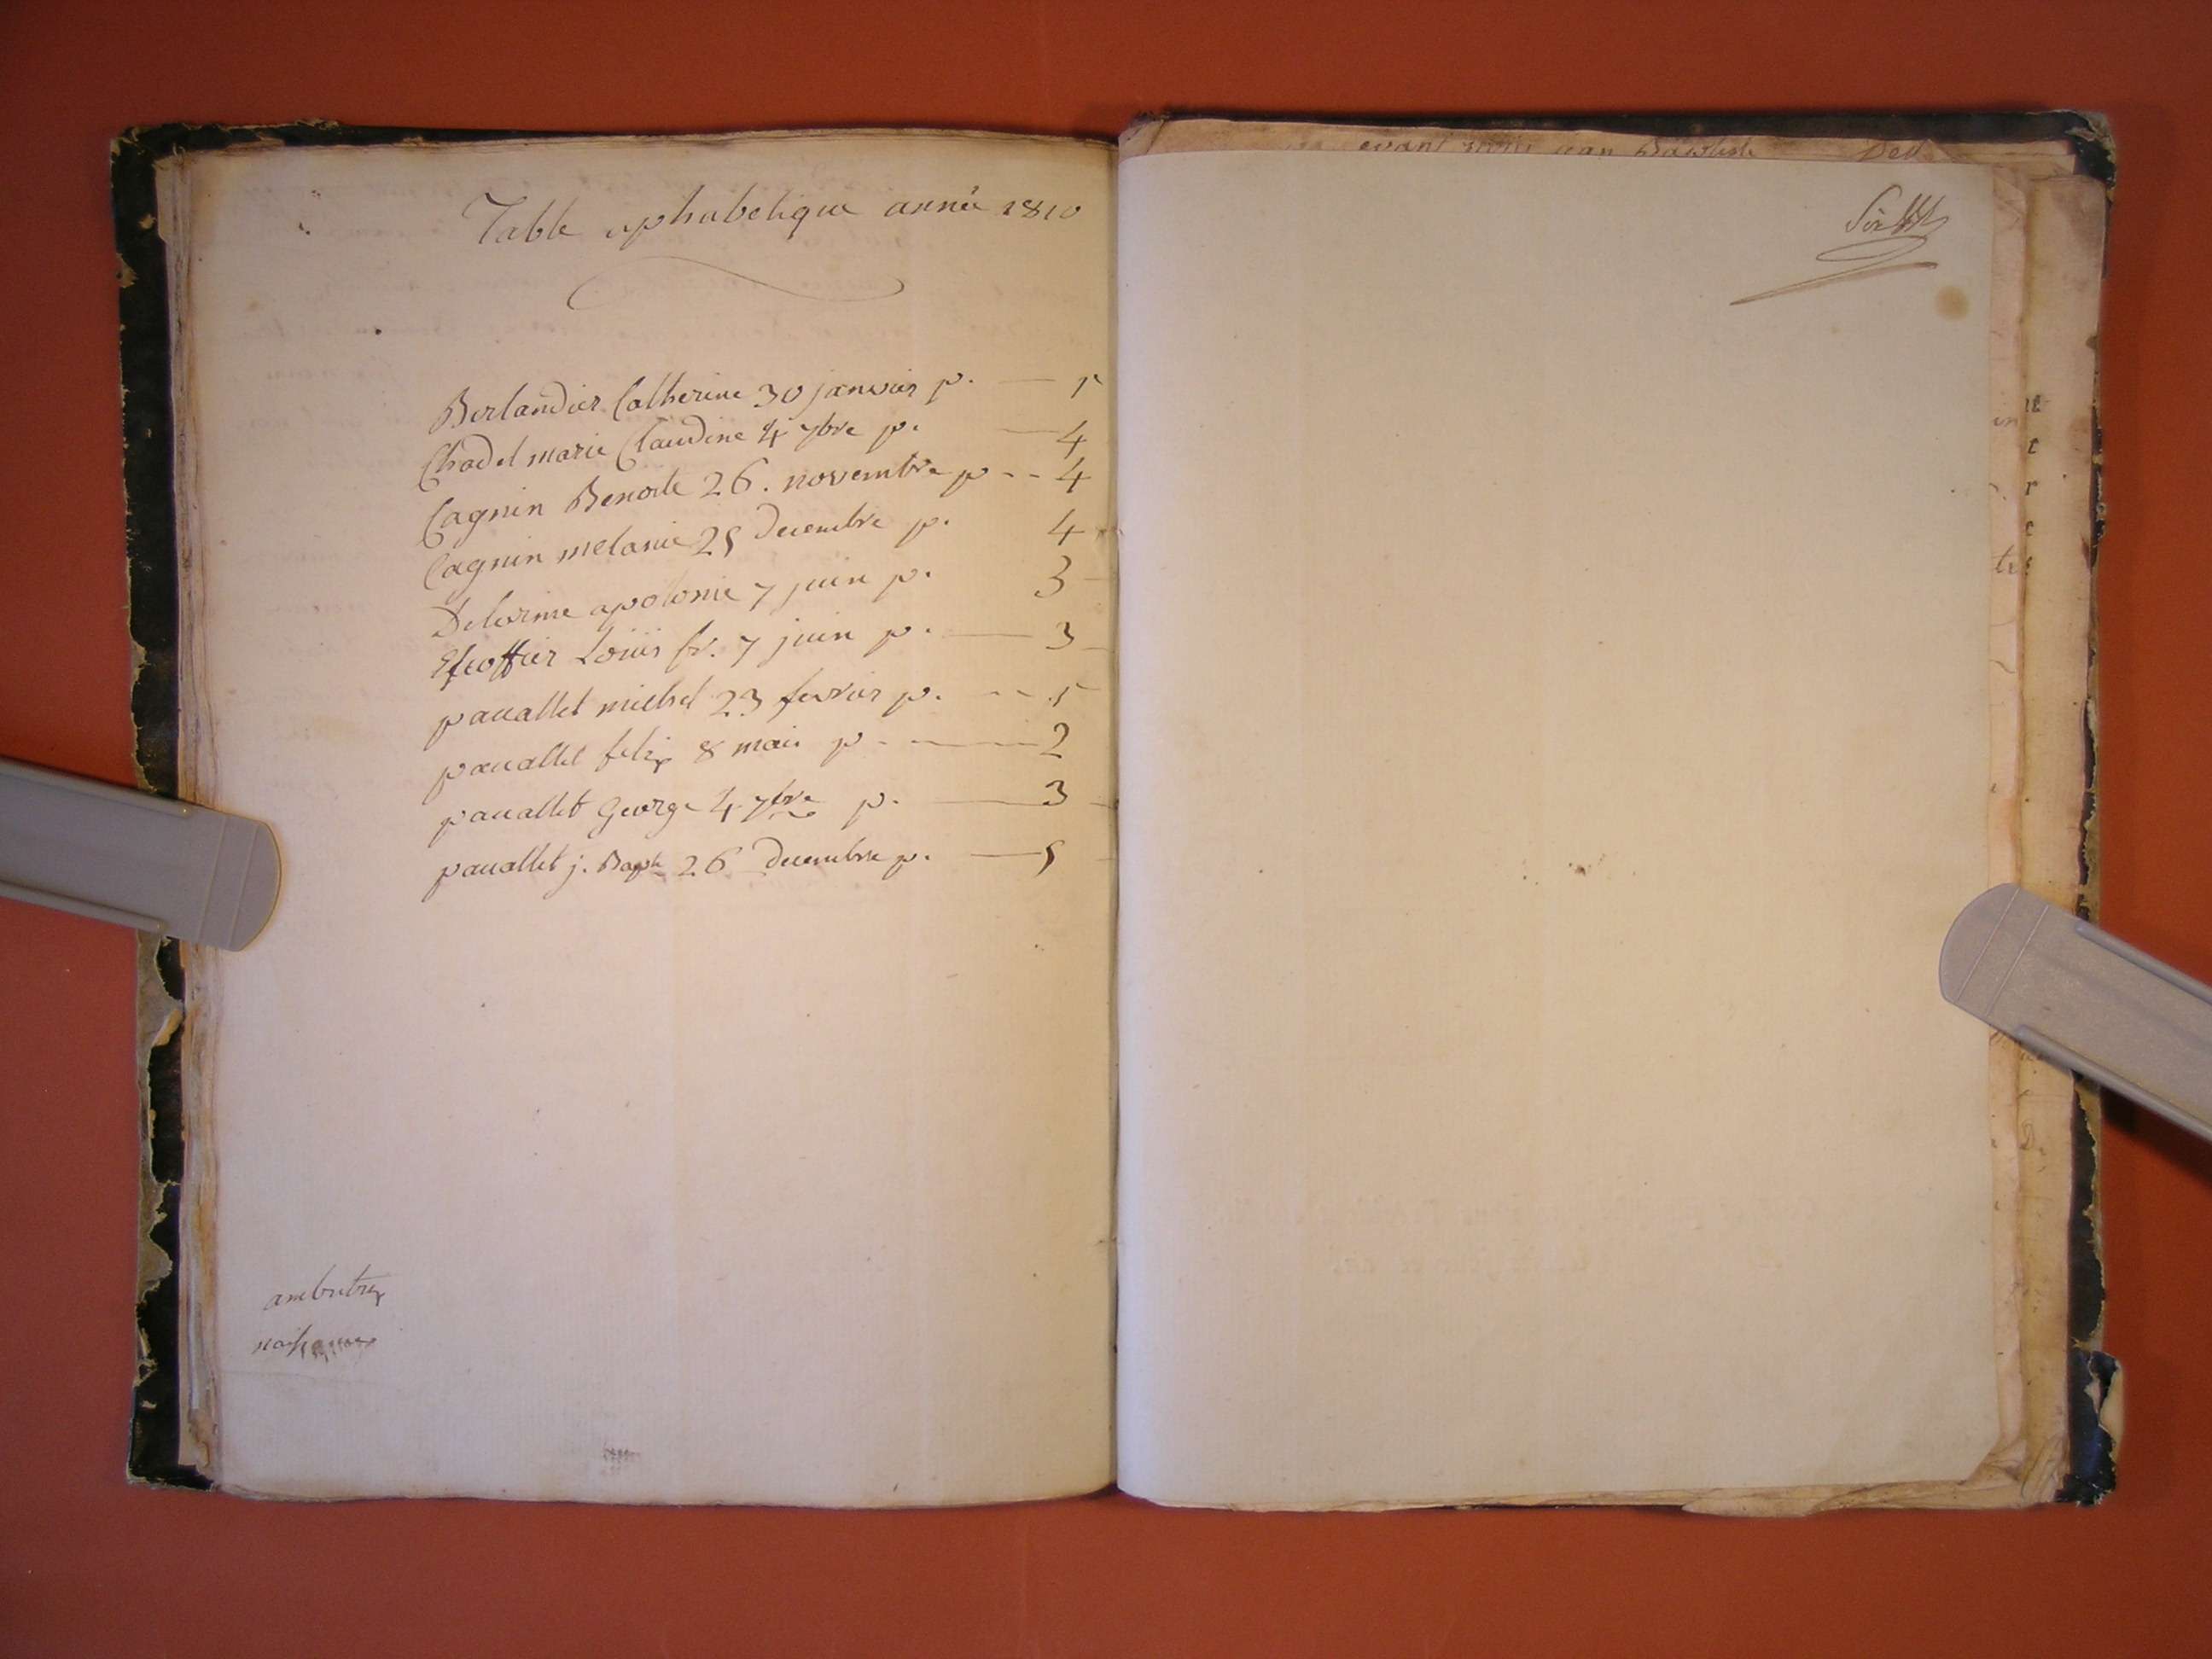 Table aphabetique année 1810
Berlandier Catherine 30 janvier p. — 1
Chadel marie Claudine 4 7bre p. — 4
Cagnin Benoite 26. novembre p -- 4
Cagnin melanie 25 Decembre p. 4
Delorme apolonie 7 juin p. 3
Escoffier Loüis fr. 7 juin p. — 3
pacallet michel 23 fevrier p. -- 1
pacallet felix 8 mai p. — 2
pacallet George 4 7bre p. — 3
pacallet j. Bapte 26 Decembre p. — 5
ambutrix
naissances
evant nous jean Baptiste